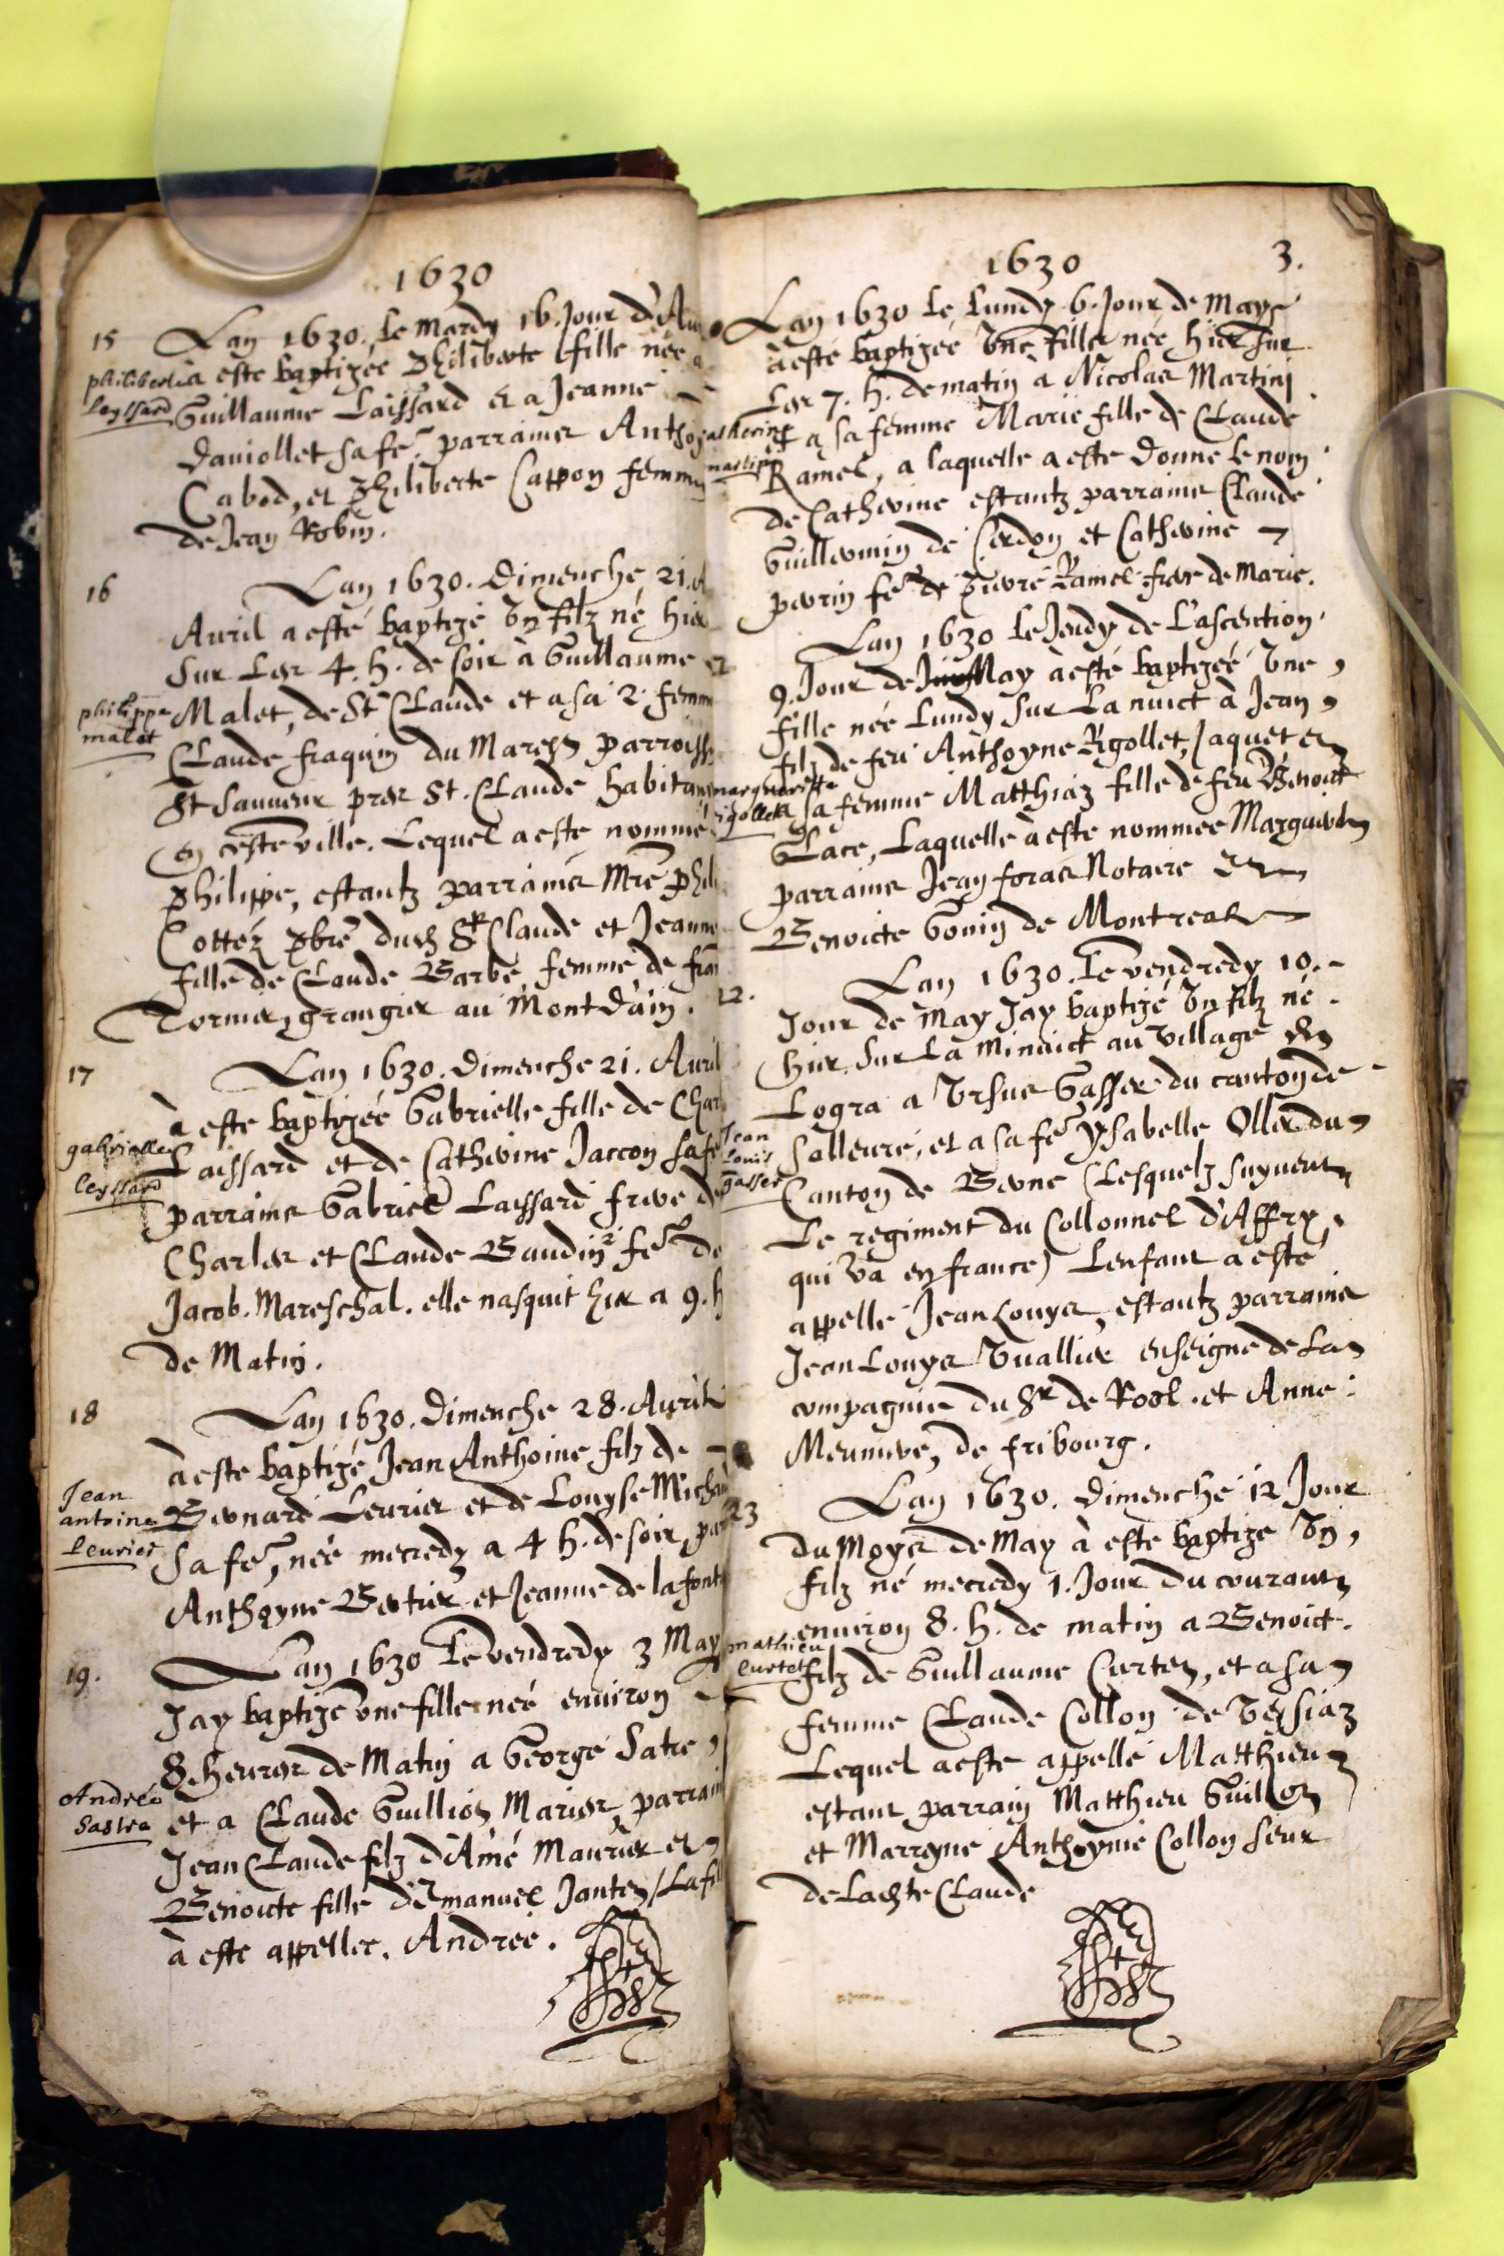 1630
15
Lan 1630. le mardy 16. Jour d'Au
philiberte
leyssard
a este baptizée Philiberte fille née a
Guillaume Laissard et a Jeanne
Daniollet sa fe. parraines Antho
Cabod, et Philiberte Cappon femme
de Jean Robin.
16
Lan 1630. Dimenche 21.
Auril a esté baptizé Un filz né hier
sur Les 4. h. de soir à Guillaume
philippe
malet
Malet, de St Claude et a sa 2. femme
Claude fraquin du Maresz parroisse
St Sauueur pres St. Claude habitan
en ceste ville. Lequel a este nommé
Philippe, estantz parraines Mre Phil
Cottéz pbre dud St Claude et Jeanne
fille de Claude Barbe, femme de fra
Tornier, grangier au Mont D'ain.
17
Lan 1630. Dimenche 21. Auril
à este baptizée Gabrielle fille de Char
gabrielle
leyssard
Laissard et de Catherine Jaccon sa fe
parraines Gabriel Laissard frere de
Charles et Claude Baudin fe de
Jacob. Mareschal. elle nasquit hier a 9. h
de Matin.
18
Lan 1630. Dimenche 28. Auril
à este baptizé Jean Anthoine filz de
Jean
antoine
leurier
Bernard Leurier et de Louyse Micha
sa fe, née mecredy a 4 h. de soir, par
Anthoyne Bertier et Jeanne de la font
19.
Lan 1630 Le vendredy 3 May
Jay baptizé une fille neé enuiron
8. heures de Matin a George Satre,
Andrée
Sastre
et a Claude Guillion Maries, parrain
Jean Claude filz d'Amé Maurier et
Benoicte fille d'Emanuel Janten / La fil
à este appellee. Andrée.
1630
3.
Lan 1630 Le Lundy 6. Jour de May
à esté baptizée Une fille née hier sur
Les 7. h. de matin a Nicolas Martin
catherine
martin
et a sa femme Marie fille de Claude
Ramel, a laquelle a este donne le nom
de Catherine estantz parraine Claude
Guillermin de Cerdon et Catherine
perrin fe de Pierre Ramel frere de Marie.
Lan 1630 Le Jeudy de L'ascention
9. Jour de May à esté baptizéé Une
fille née Lundy sur La nuict à Jean
filz de feu Anthoyne Rgollet, Jaquet et
marguerite
rigollet
a sa femme Matthiaz fille de feu Benoict
Glace, Laquelle à este nommee Marguerite
parraine Jean foras Notaire et
Benoicte Gonin de Montreal
22.
Lan 1630. Le vendredy 10.
Jour de May Jay baptizé Un filz né
hier sur La Minuict au village de
Logra a Ursue Gasser du canton de
Jean
Louis
gasser
Salleure, et a sa fe Ysabelle Oller du
Canton de Berne (Lesquelz suyuent
Le regiment du Collonnel d'Affry,
qui va en france) Lenfant a esté
appellé Jean Louyes, estantz parraine
Jean Louyes Vuallier enseigne de La
compagnie du Sr de Rool. et Anne
Meunuve, de fribourg.
23
Lan 1630. Dimenche 12 Jour
du Moyes de May à este baptize Un
filz né mecredy 1. Jour du courant
enuiron 8. h. de matin a Benoict
mathieu
curtet
filz de Guillaume Curten, et a sa
femme Claude Collon de Veysiaz
Lequel a este appellé Matthieu
estant parrain Matthieu Guillon
et Marrgne Anthoynie Collon seur
de Ladte Claude